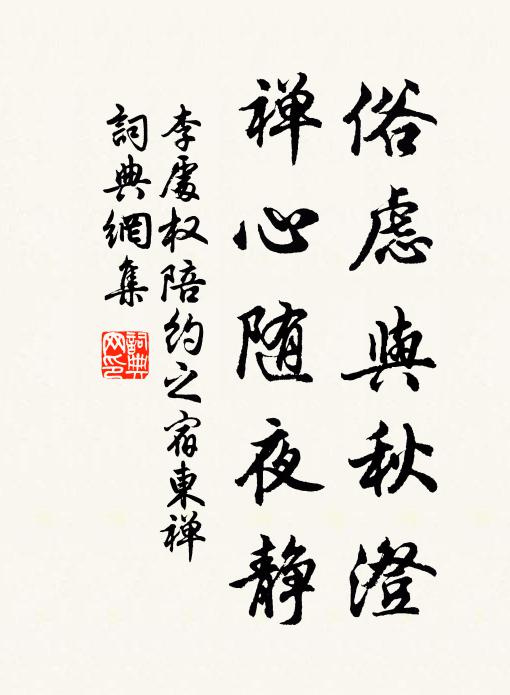 俗慮與秋澄
禅心随夜静
李處权陪约之宿東禅
詞典網集
詞典網印